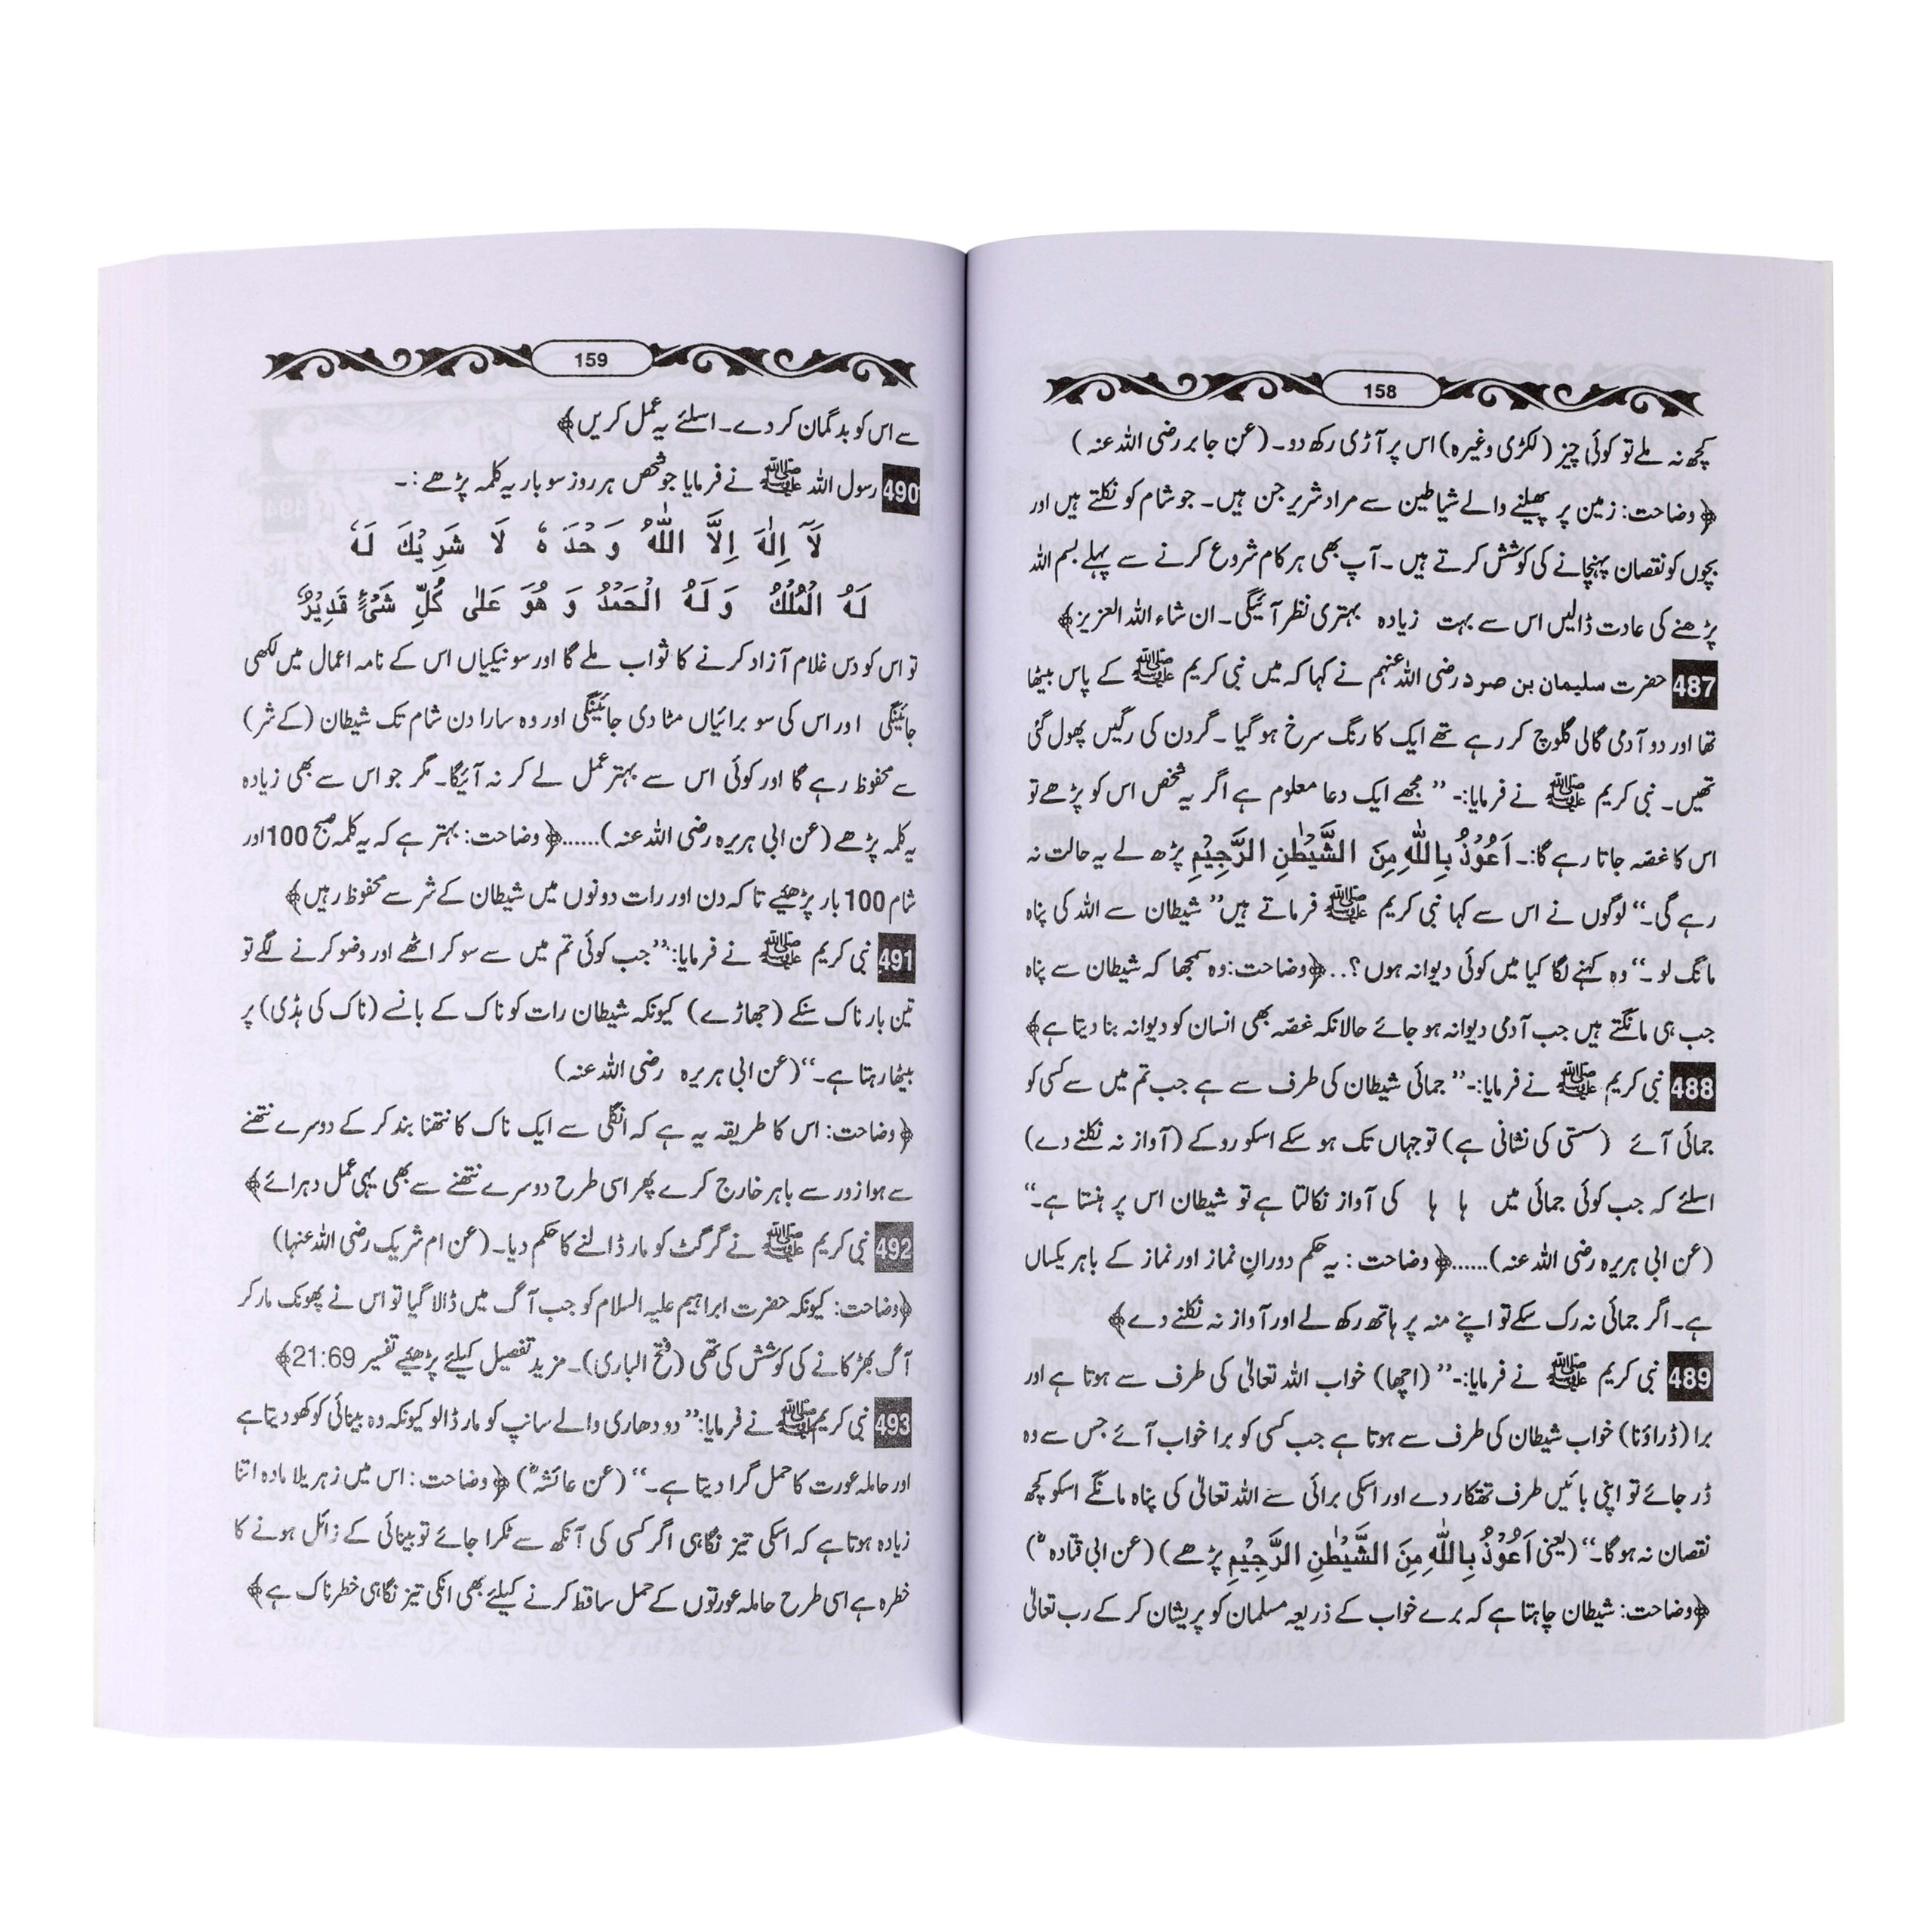 158
کچھ نہ ملے تو کوئی چیز (لکڑی وغیرہ) اس پر آڑی رکھ دو۔ (عن جابر رضی اللہ عنہ)
﴿وضاحت: زمین پر پھیلنے والے شیاطین سے مراد شریر جن ہیں۔ جو شام کو نکلتے ہیں اور
بچوں کو نقصان پہنچانے کی کوشش کرتے ہیں۔ آپ بھی ہر کام شروع کرنے سے پہلے بسم اللہ
پڑھنے کی عادت ڈالیں اس سے بہت زیادہ بہتری نظر آئیگی۔ ان شاء اللہ العزیز﴾
487 حضرت سلیمان بن صرد رضی اللہ عنہم نے کہا کہ میں نبی کریم ﷺ کے پاس بیٹھا
تھا اور دو آدمی گالی گلوچ کر رہے تھے ایک کا رنگ سرخ ہو گیا۔ گردن کی رگیں پھول گئی
تھیں۔ نبی کریم ﷺ نے فرمایا:۔ ”مجھے ایک دعا معلوم ہے اگر یہ شخص اس کو پڑھے تو
اس کا غصّہ جاتا رہے گا:۔ اَعُوْذُ بِاللّٰهِ مِنَ الشَّيْطٰنِ الرَّجِيْمِ پڑھ لے یہ حالت نہ
رہے گی۔“ لوگوں نے اس سے کہا نبی کریم ﷺ فرماتے ہیں ”شیطان سے اللہ کی پناہ
مانگ لو۔“ وہ کہنے لگا کیا میں کوئی دیوانہ ہوں؟..﴿وضاحت: وہ سمجھا کہ شیطان سے پناہ
جب ہی مانگتے ہیں جب آدمی دیوانہ ہو جائے حالانکہ غصّہ بھی انسان کو دیوانہ بنا دیتا ہے﴾
488 نبی کریم ﷺ نے فرمایا:۔ ”جمائی شیطان کی طرف سے ہے جب تم میں سے کسی کو
جمائی آئے (سستی کی نشانی ہے) تو جہاں تک ہو سکے اسکو روکے (آواز نہ نکلنے دے)
اسلئے کہ جب کوئی جمائی میں ہا ہا کی آواز نکالتا ہے تو شیطان اس پر ہنستا ہے۔“
(عن ابی ہریرہ رضی اللہ عنہ)......﴿وضاحت: یہ حکم دورانِ نماز اور نماز کے باہر یکساں
ہے۔ اگر جمائی نہ رک سکے تو اپنے منہ پر ہاتھ رکھ لے اور آواز نہ نکلنے دے﴾
489 نبی کریم ﷺ نے فرمایا:۔ ”(اچھا) خواب اللہ تعالیٰ کی طرف سے ہوتا ہے اور
برا (ڈراؤنا) خواب شیطان کی طرف سے ہوتا ہے جب کسی کو برا خواب آئے جس سے وہ
ڈر جائے تو اپنی بائیں طرف تھتکار دے اور اسکی برائی سے اللہ تعالیٰ کی پناہ مانگے اسکو کچھ
نقصان نہ ہو گا۔“ (یعنی اَعُوْذُ بِاللّٰهِ مِنَ الشَّيْطٰنِ الرَّجِيْمِ پڑھے) (عن ابی قتادہؓ)
﴿وضاحت: شیطان چاہتا ہے کہ برے خواب کے ذریعہ مسلمان کو پریشان کر کے رب تعالیٰ
159
سے اس کو بدگمان کر دے۔ اسلئے یہ عمل کریں﴾
490 رسول اللہ ﷺ نے فرمایا جو شخص ہر روز سو بار یہ کلمہ پڑھے:۔
لَآ اِلٰهَ اِلَّا اللّٰهُ وَحْدَهٗ لَا شَرِيْكَ لَهٗ
لَهُ الْمُلْكُ وَ لَهُ الْحَمْدُ وَ هُوَ عَلٰى كُلِّ شَيْءٍ قَدِيْرٌ
تو اس کو دس غلام آزاد کرنے کا ثواب ملے گا اور سو نیکیاں اس کے نامہ اعمال میں لکھی
جائینگی اور اس کی سو برائیاں مٹا دی جائینگی اور وہ سارا دن شام تک شیطان (کے شر)
سے محفوظ رہے گا اور کوئی اس سے بہتر عمل لے کر نہ آئیگا۔ مگر جو اس سے بھی زیادہ
یہ کلمہ پڑھے (عن ابی ہریرہ رضی اللہ عنہ)......﴿وضاحت: بہتر ہے کہ یہ کلمہ صبح 100 اور
شام 100 بار پڑھئیے تاکہ دن اور رات دونوں میں شیطان کے شر سے محفوظ رہیں﴾
491 نبی کریم ﷺ نے فرمایا: ”جب کوئی تم میں سے سو کر اٹھے اور وضو کرنے لگے تو
تین بار ناک سنکے (جھاڑے) کیونکہ شیطان رات کو ناک کے بانسے (ناک کی ہڈی) پر
بیٹھا رہتا ہے۔“ (عن ابی ہریرہ رضی اللہ عنہ)
﴿وضاحت: اس کا طریقہ یہ ہے کہ انگلی سے ایک ناک کا نتھنا بند کر کے دوسرے نتھنے
سے ہوا زور سے باہر خارج کرے پھر اسی طرح دوسرے نتھنے سے بھی یہی عمل دہرائے﴾
492 نبی کریم ﷺ نے گرگٹ کو مار ڈالنے کا حکم دیا۔ (عن ام شریک رضی اللہ عنہا)
﴿وضاحت: کیونکہ حضرت ابراہیم علیہ السلام کو جب آگ میں ڈالا گیا تو اس نے پھونک مار کر
آگ بھڑکانے کی کوشش کی تھی (فتح الباری)۔ مزید تفصیل کیلئے پڑھئیے تفسیر 21:69﴾
493 نبی کریم ﷺ نے فرمایا: ”دو دھاری والے سانپ کو مار ڈالو کیونکہ وہ بینائی کو کھو دیتا ہے
اور حاملہ عورت کا حمل گرا دیتا ہے۔“ (عن عائشہؓ) ﴿وضاحت: اس میں زہریلا مادہ اتنا
زیادہ ہوتا ہے کہ اسکی تیز نگاہی اگر کسی کی آنکھ سے ٹکرا جائے تو بینائی کے زائل ہونے کا
خطرہ ہے اسی طرح حاملہ عورتوں کے حمل ساقط کرنے کیلئے بھی انکی تیز نگاہی خطرناک ہے﴾